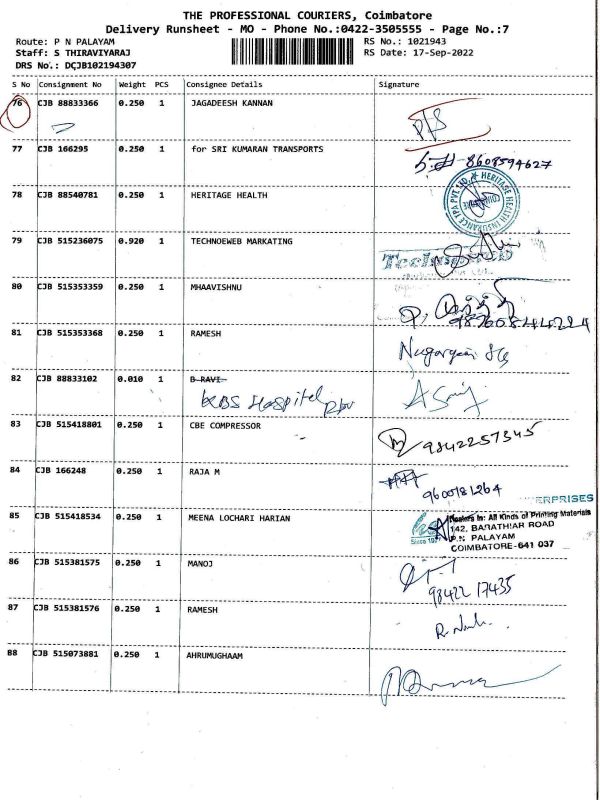 THE PROFESSIONAL COURIERS, Coimbatore
Delivery Runsheet - MO - Phone No.:0422-3505555 - Page No.:7
Route: P N PALAYAM
Staff: S THIRAVIYARAJ
DRS No.: DCJB102194307
RS No.: 1021943
RS Date: 17-Sep-2022
S No Consignment No Weight PCS Consignee Details Signature
76 CJB 88833366 0.250 1 JAGADEESH KANNAN
77 CJB 166295 0.250 1 for SRI KUMARAN TRANSPORTS
8608594627
78 CJB 88540781 0.250 1 HERITAGE HEALTH
HERITAGE HEALTH INSURANCE TPA PVT. LTD.
79 CJB 515236075 0.920 1 TECHNOEWEB MARKATING
80 CJB 515353359 0.250 1 MHAAVISHNU
81 CJB 515353368 0.250 1 RAMESH
82 CJB 88833102 0.010 1 B RAVI
KBS Hospital
83 CJB 515418801 0.250 1 CBE COMPRESSOR
9842257345
84 CJB 166248 0.250 1 RAJA M
9600181264
ERPRISES
85 CJB 515418534 0.250 1 MEENA LOCHARI HARIAN
Dealers in: All Kinds of Printing Materials
142, BARATHIAR ROAD
P.N. PALAYAM
COIMBATORE-641 037
86 CJB 515381575 0.250 1 MANOJ
98422 17435
87 CJB 515381576 0.250 1 RAMESH
88 CJB 515073881 0.250 1 AHRUMUGHAAM